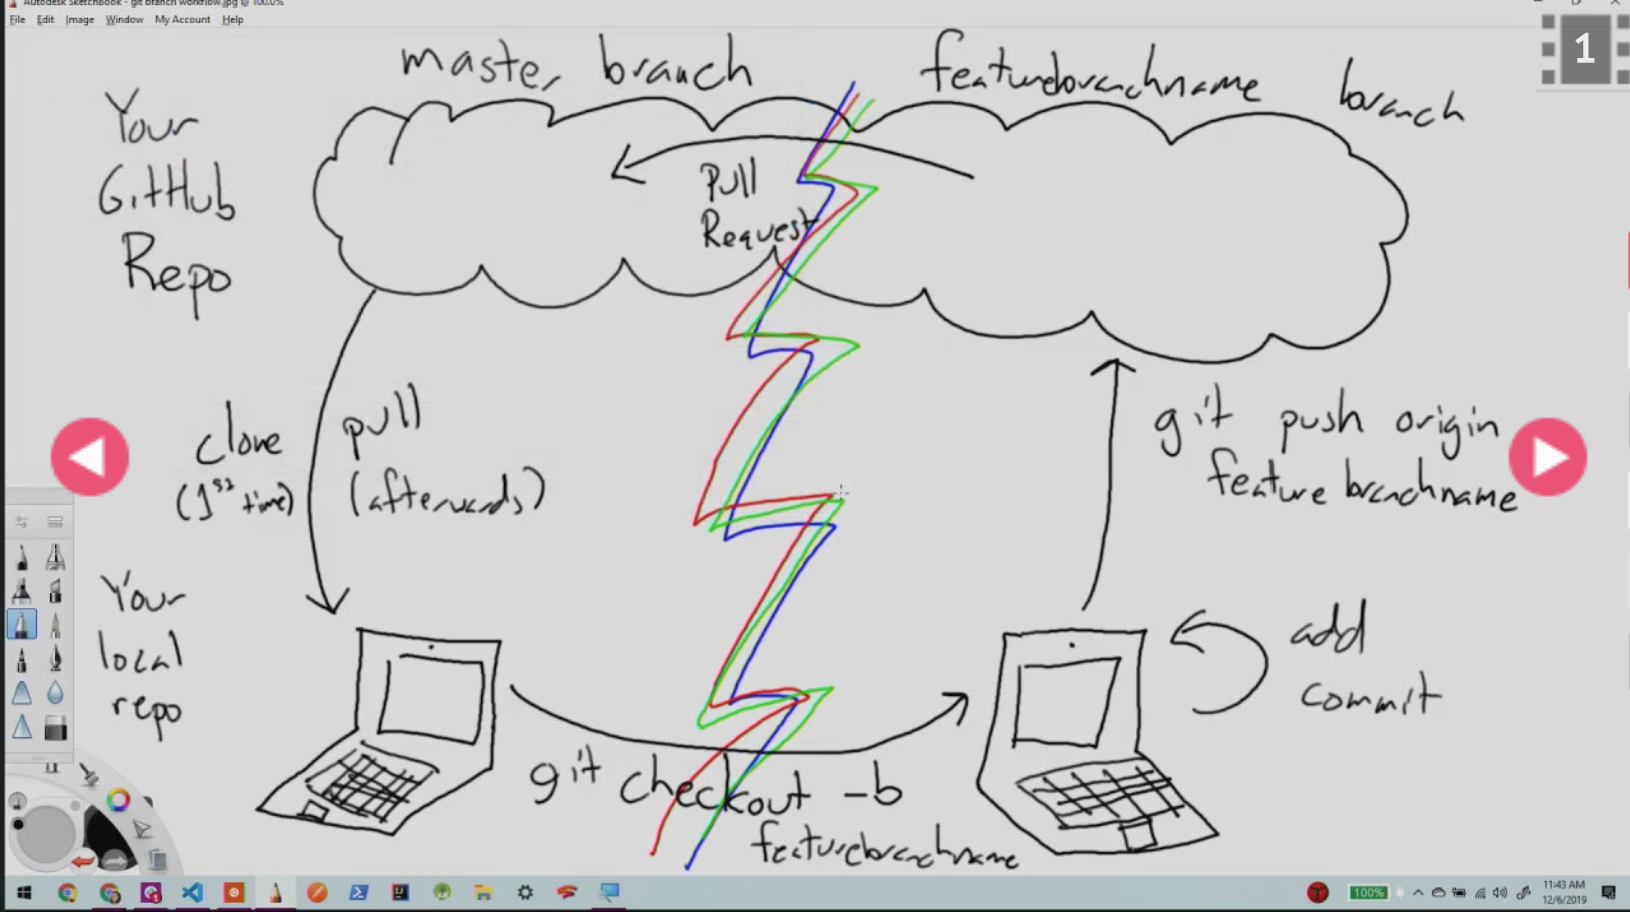 Autodesk SketchBook - git branch workflow.jpg @ 100.0%
File Edit Image Window My Account Help
1
master branch
featurebranchname branch
Your
GitHub
Repo
Pull
Request
clone
(1st time)
pull
(afterwards)
git push origin
feature branchname
Your
local
repo
add
commit
git checkout -b
featurebranchname
100%
11:43 AM
12/6/2019